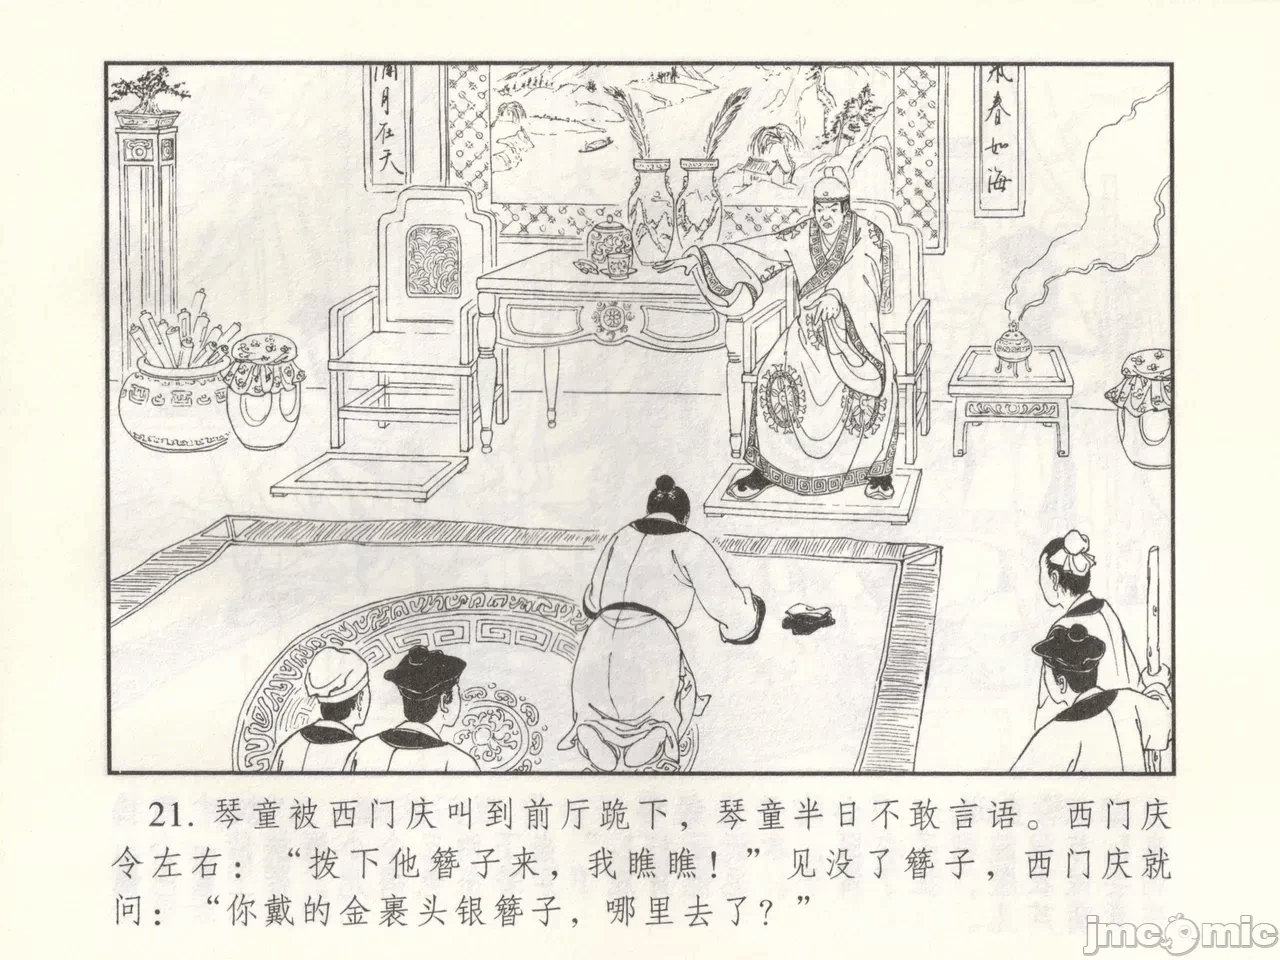 阔月在天
风春如海
21. 琴童被西门庆叫到前厅跪下，琴童半日不敢言语。西门庆
令左右：“拨下他簪子来，我瞧瞧！”见没了簪子，西门庆就
问：“你戴的金裹头银簪子，哪里去了？”
jmcomic